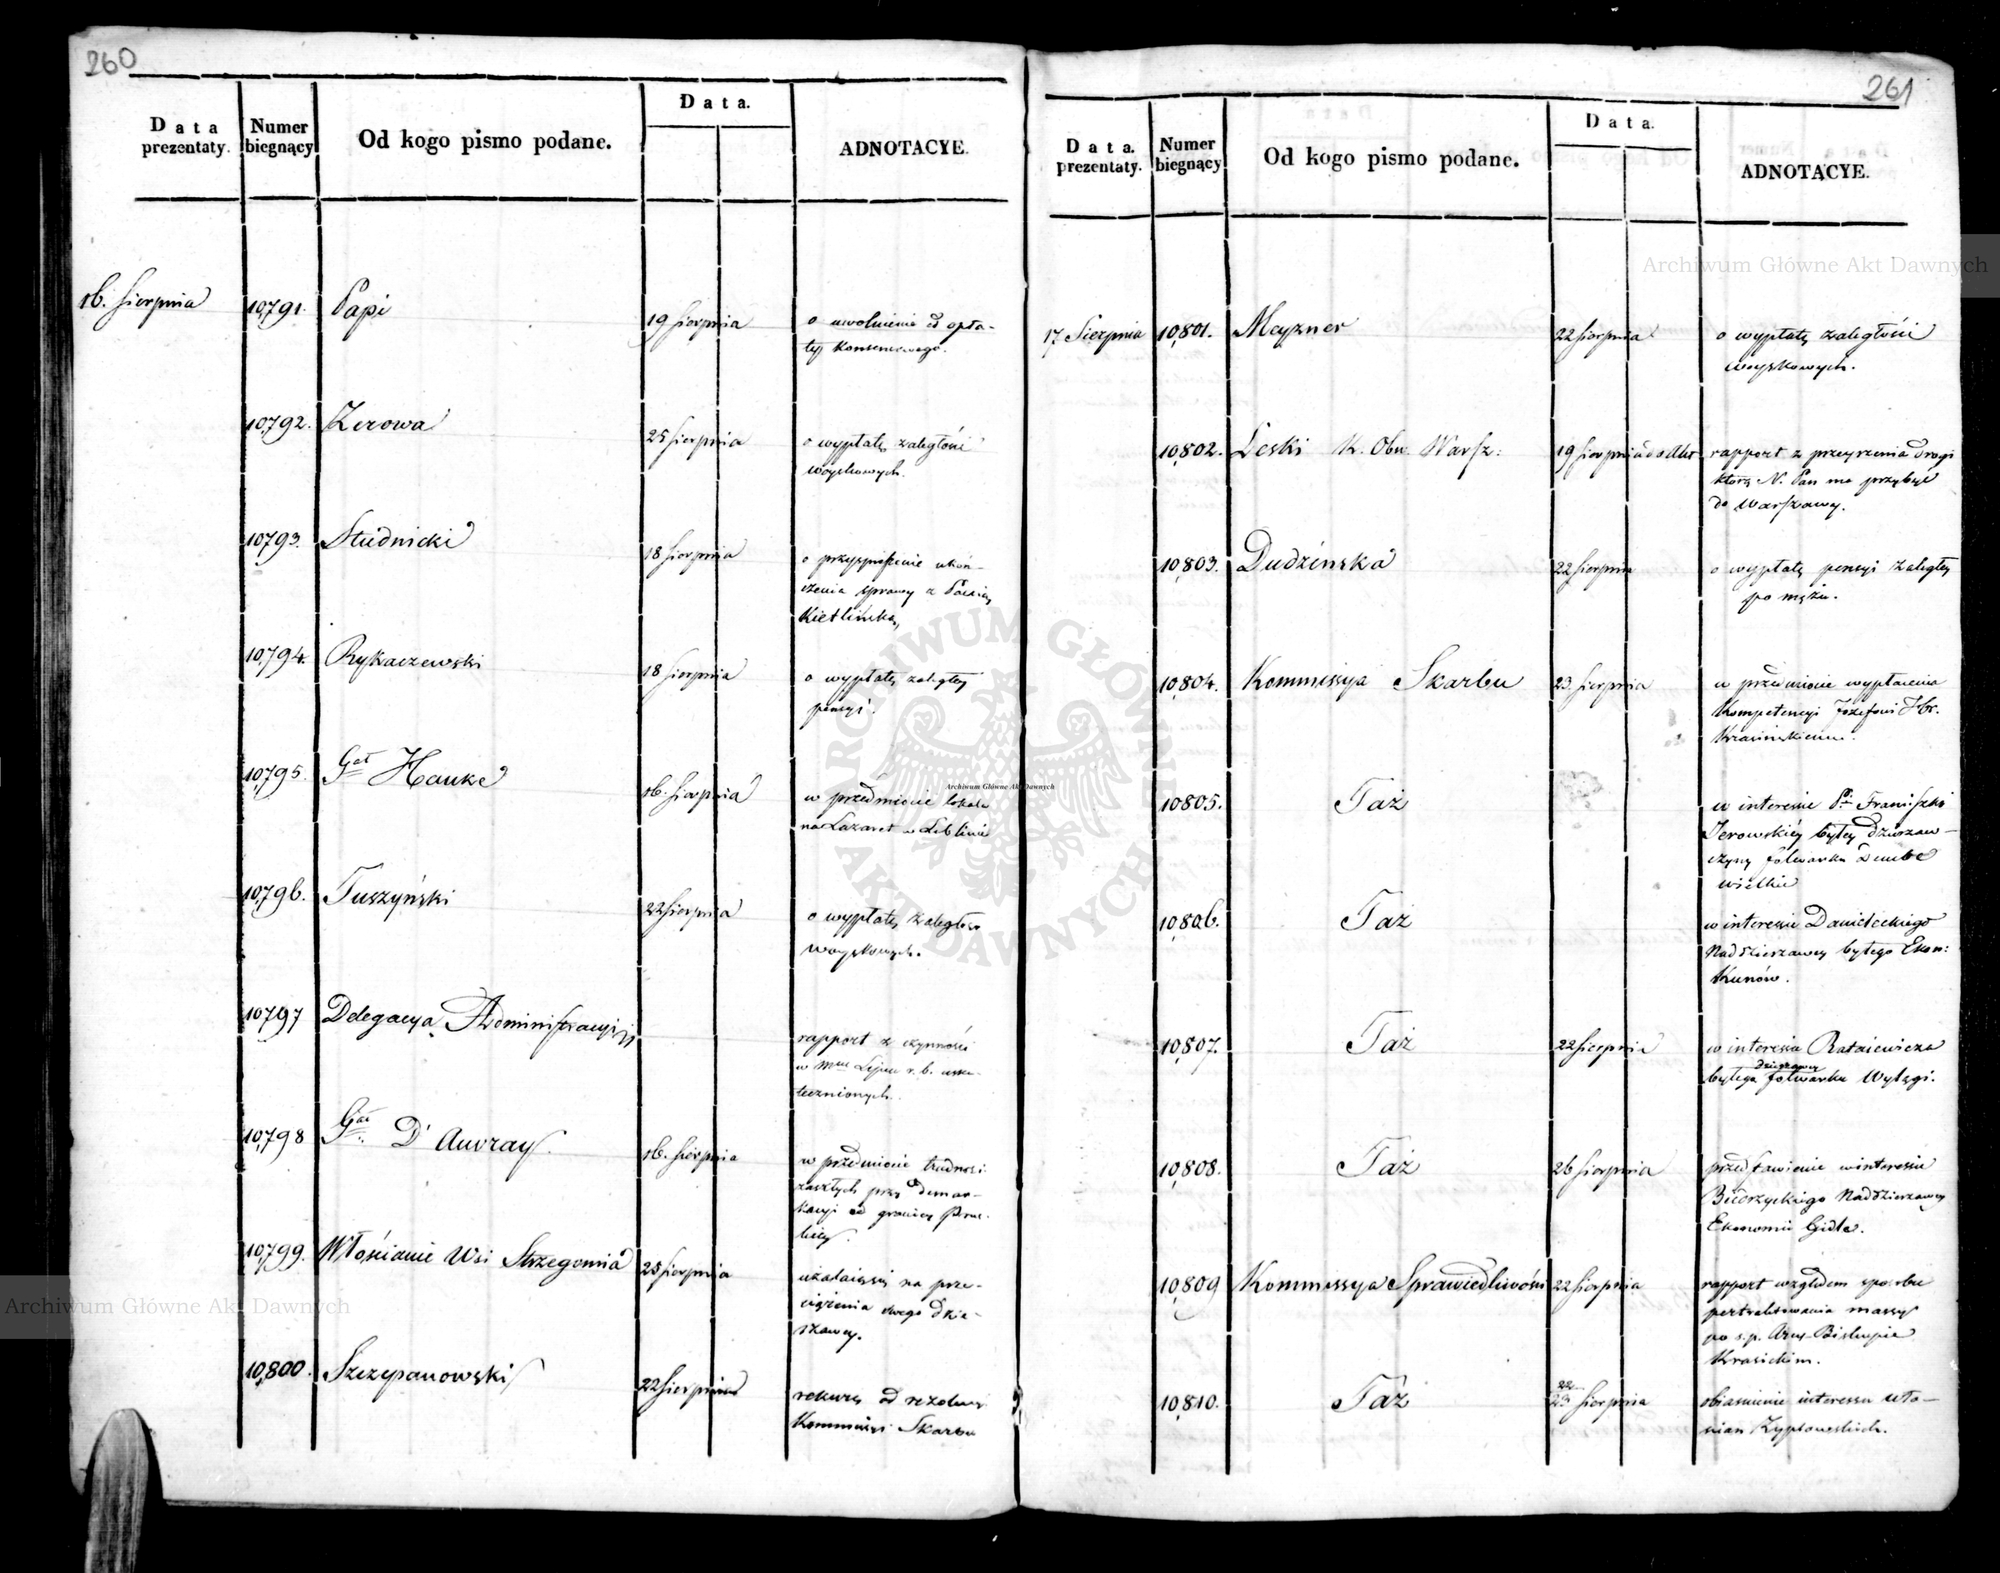 260
Data prezentaty.
Numer biegnący
Od kogo pismo podane.
Data.
ADNOTACYE.
16. Sierpnia 10,791. Papi 19 Sierpnia o uwolnienie od opła-
ty konsensowego.
10,792. Zerowa 25 Sierpnia o wypłatę zaległości
woyskowych.
10,793. Studnicki 18 Sierpnia o przyspieszenie ukoń-
czenia sprawy z Panią
Kietlińską
10,794. Rykaczewski 18 Sierpnia o wypłatę zaległey
pensyi.
10,795. Gał Hauke 16. Sierpnia w przedmiocie lokalu
na Lazaret w Lublinie
10,796. Tuszyński 22 Sierpnia o wypłatę zaległości
woyskowych.
10,797 Delegacya Administracyi rapport z czynności
w mcu Lipcu r. b. usku-
tecznionych.
10,798 Gał D'Auvray 16. Sierpnia w przedmiocie trudności
zaszłych przy demar-
kacyi od granicy Prus-
kiey.
10,799. Włościanie Wsi Strzegomia 25 Sierpnia użalaiący na prze-
ciążenia swego dzie-
rżawcy.
10,800. Szczepanowski 22 Sierpnia rekurs od rezolucyi
Kommissyi Skarbu
261
Data prezentaty.
Numer biegnący
Od kogo pismo podane.
Data.
ADNOTACYE.
17 Sierpnia 10,801. Meyzner 22 Sierpnia o wypłatę zaległości
woyskowych.
10,802. Leski K. Obw. Warsz: 19 Sierpnia do Akt rapport z przeyrzenia drogi
którą N. Pan ma przybyć
do Warszawy.
10,803. Dudzińska 22 Sierpnia o wypłatę pensyi zaległey
po mężu.
10,804. Kommissya Skarbu 23. Sierpnia w przedmiocie wypłacenia
Kompetencyi Jozefowi Hr.
Krasinskiemu.
10805. Taż w interesie Pi Franciszki
Jerowskiéy byłey dzierzaw-
czyny folwarku Dembe
wielkie
10,806. Taż w interesie Danieleckiego
Naddzierzawcy byłego Ekon:
Kunów.
10,807. Taż 22 Sierpnia w interesie Rataiewicza
byłego dzierzawcy folwarku Wylągi.
10,808. Taż 26 Sierpnia przedstawienie w interesie
Biedrzyckiego Naddzierzawcy
Ekonomii Gidle.
10,809 Kommissya Sprawiedliwości 22 Sierpnia rapport względem sposobu
pertraktowania massy
po s.p. Arcy-Biskupie
Krasickim.
10,810. Taż 22 23 Sierpnia obiasnienie interessu wło-
scian Zyptowskich.
Archiwum Główne Akt Dawnych
Archiwum Główne Akt Dawnych
Archiwum Główne Akt Dawnych
ARCHIWUM GŁÓWNE AKT DAWNYCH